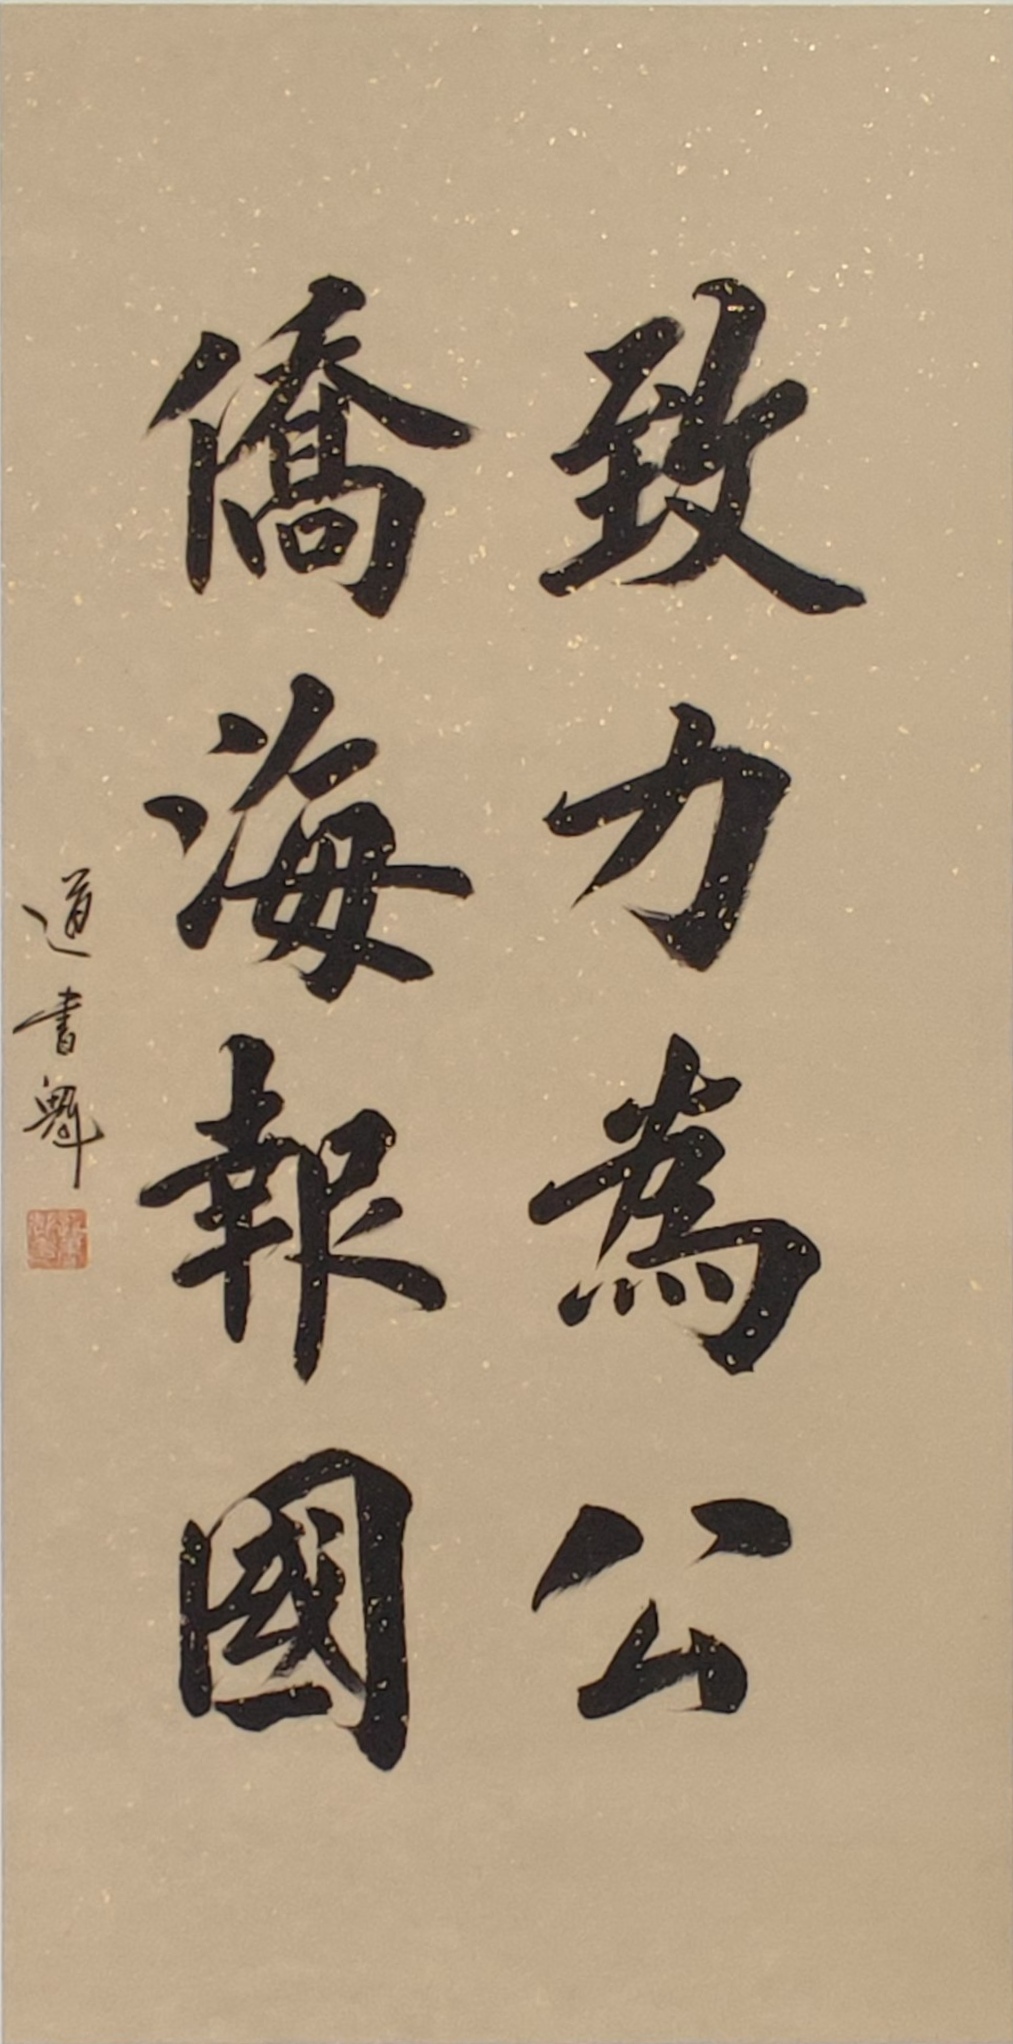 致力為公
僑海報國
道書